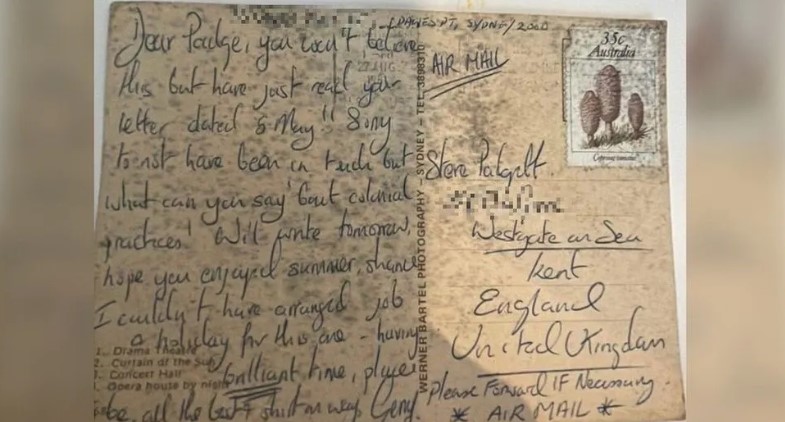 DAWES PT, SYDNEY 2000
Dear Padge, you won't believe
this but have just read your
letter dated 5 May!! Sorry
to not have been in touch but
what can you say 'bout colonial
practices! Will write tomorrow,
hope you enjoyed summer, shame
I couldn't have arranged job
& holiday for this one - having
brilliant time, player
be, all the best & shirt on way Gerry.
1. Drama Theatre
2. Curtain of the Sun
3. Concert Hall
4. Opera house by night
WERNER BARTEL PHOTOGRAPHY – SYDNEY – TEL:
AIR MAIL
35c
Australia
Coprinus comatus
Steve Padgett.
Westgate on Sea
Kent
England
United Kingdom
Please Forward IF Necessary.
* AIR MAIL *